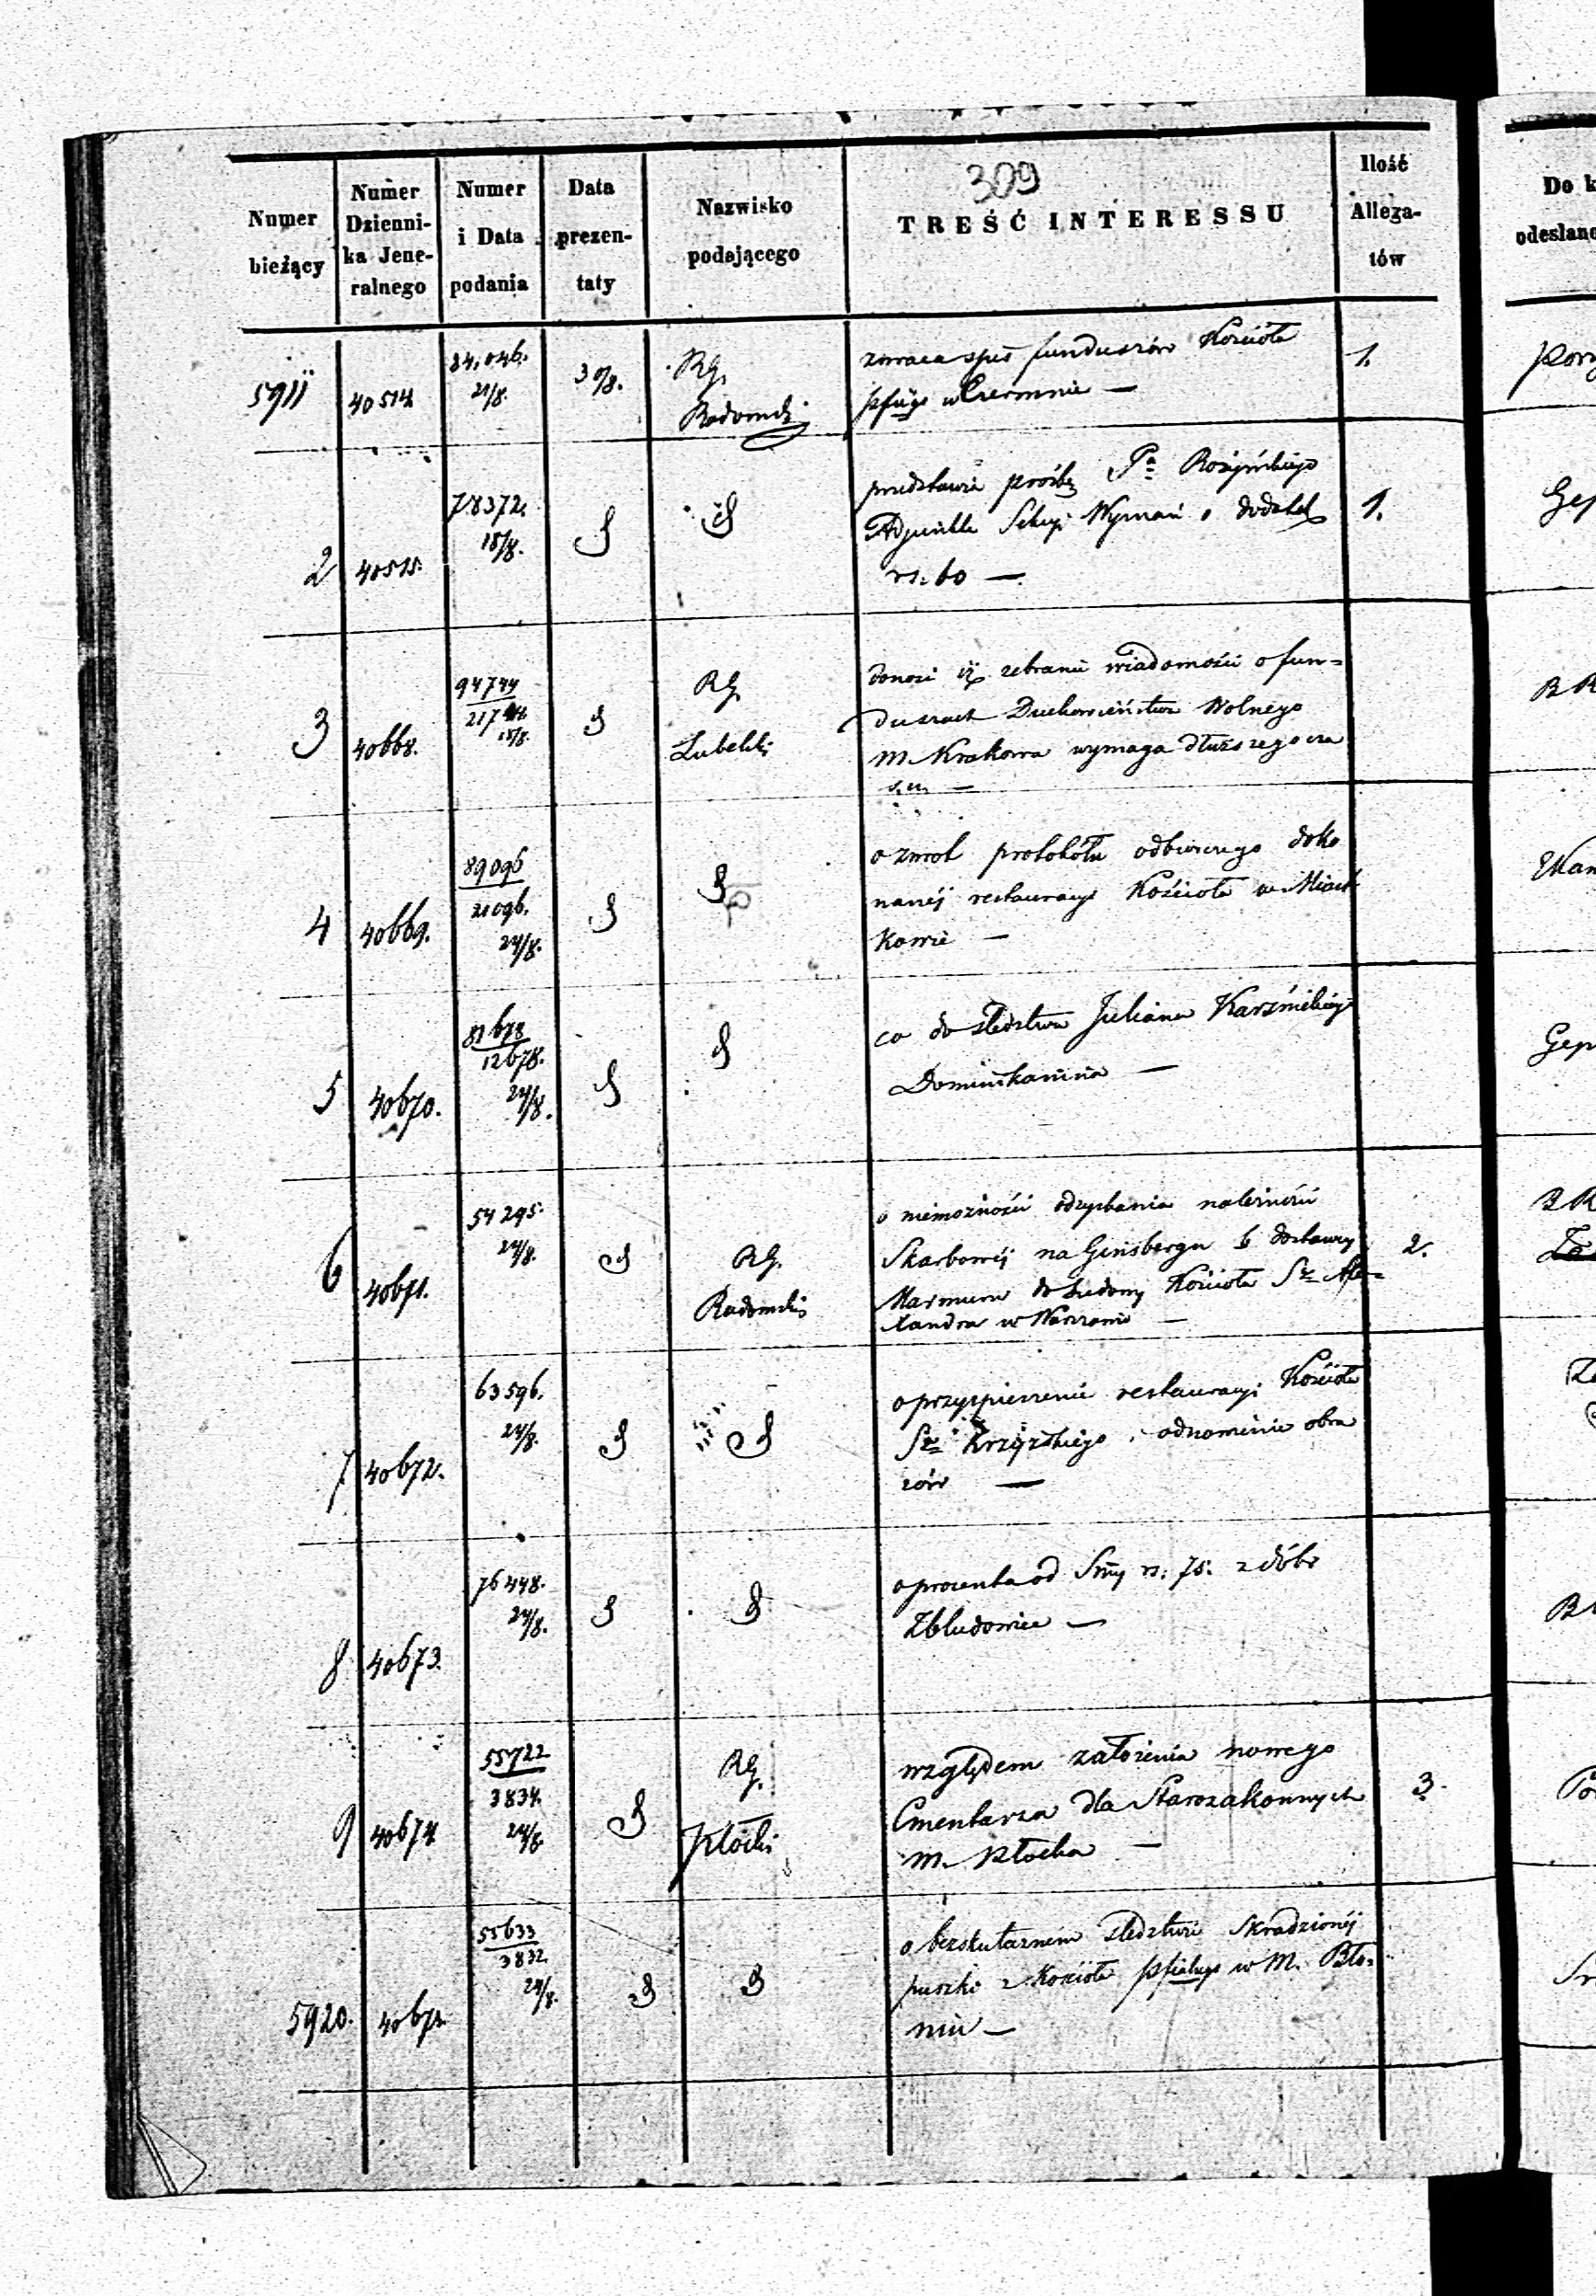 309
Numer bieżący
Numer Dzienni-
ka Jene-
ralnego
Numer
i Data
podania
Data
prezen-
taty
Nazwisko
podającego
TREŚĆ INTERESSU
Ilość
Allega-
tów
Do k
odesłano
5911
40514
84,046.
21/8.
30/8.
RG.
Radomski
zwraca spis funduszów Kościoła
pflgo w Czermnie —
1.
2
40515.
78372.
18/8.
przedstawia prośbę Pa Rożyńskiego
Adjunkta Sekcyi Wyznań o dodatek
rs. 60 —
1.
Gep
3
40668.
94744
18/8.
RG.
Lubelski
donosi iż zebranie wiadomości o fun=
duszach Duchowieństwa Wolnego
m. Krakowa wymaga dłuższego cza
su —
4
40669.
89096
21096.
24/8.
o zwrot protokółu odbiorczego doko
nanéj restauracyi Kościoła w Miast
kowie —
5
40670.
81678
12678.
24/8.
co do śledztwa Juliana
Dominikanina —
Gep
6
40671.
54295.
24/8.
RG.
Radomski
o niemożności odzyskania należności
Skarbowéj na Ginsbergu b dostawcy
Marmuru do budowy Kościoła Sgo Ale=
xandra w Warszawie —
2.
7
40672.
63596.
24/8.
o przyspieszenie restauracyi Kościoła
Sgo Krzyzkiego i odnowienie obra
zów —
8
40673.
76448.
24/8.
o procenta od Smy rs. 75. z dóbr
Zbludowice —
9
40674
55722
3834.
24/8.
RG.
Płocki
względem założenia nowego
Cmentarza dla Starozakonnych
m. Płocka —
3.
5920.
40675.
55633
3832.
24/8.
o bezskutecznem śledztwie skradzionéj
puszki z Kościoła pfialnego w M. Bło=
niu —